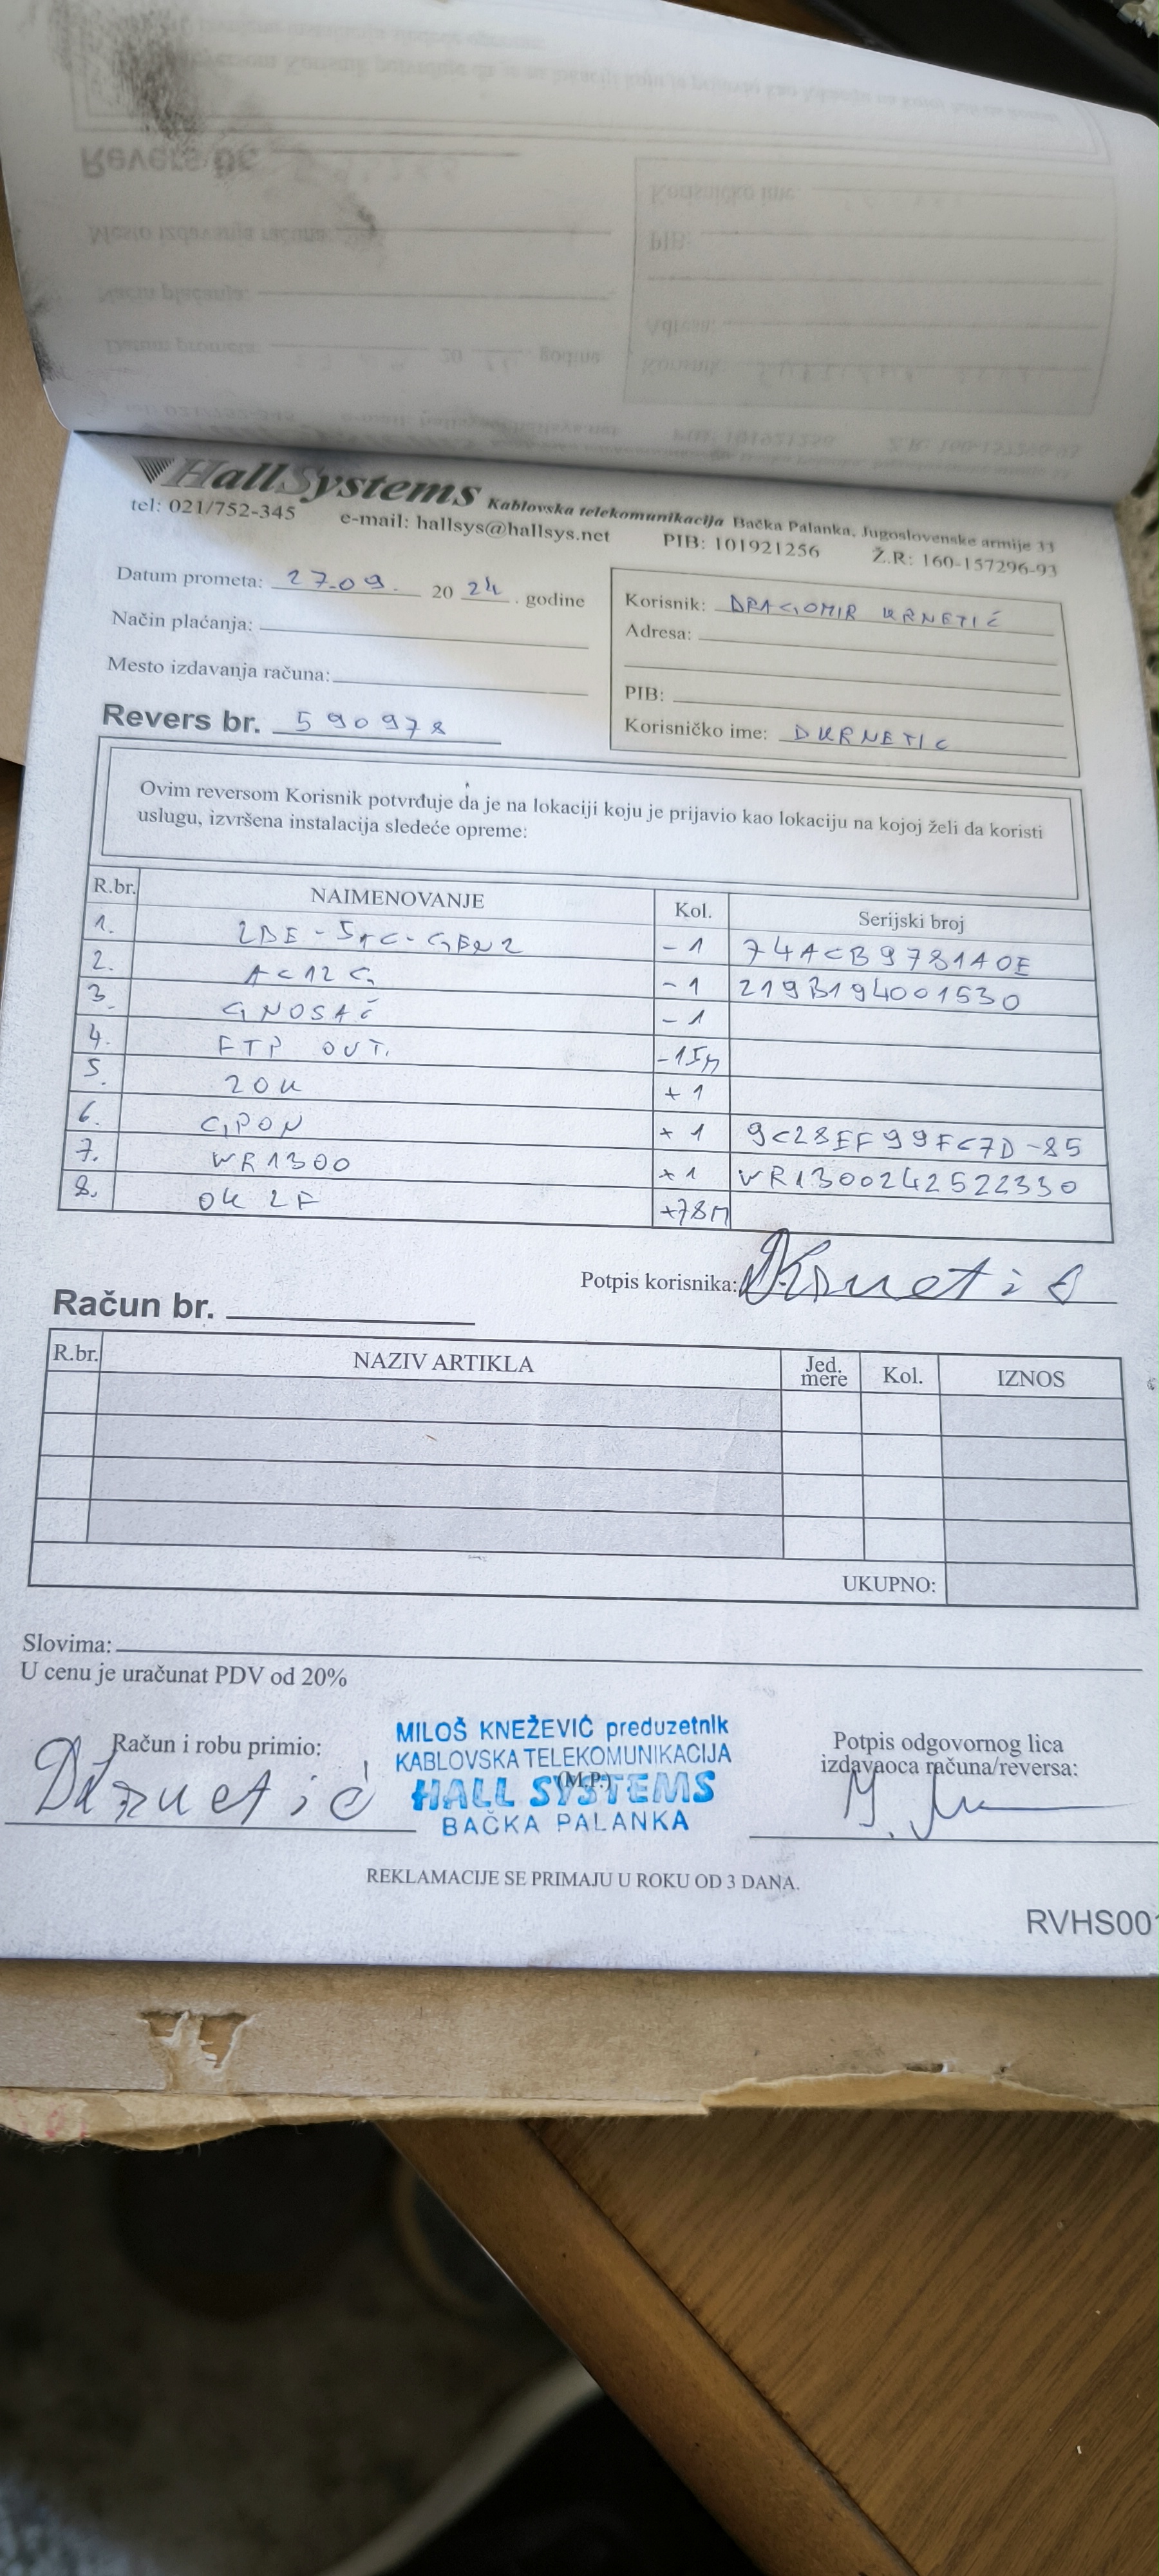 HallSystems Kablovska telekomunikacija Bačka Palanka, Jugoslovenske armije 33
tel: 021/752-345 e-mail: hallsys@hallsys.net PIB: 101921256 Ž.R: 160-157296-93
Datum prometa: 27.09. 2024. godine
Način plaćanja:
Mesto izdavanja računa:
Revers br. 590978
Korisnik: DRAGOMIR KRNETIĆ
Adresa:
PIB:
Korisničko ime: DKRNETIC
Ovim reversom Korisnik potvrđuje da je na lokaciji koju je prijavio kao lokaciju na kojoj želi da koristi
uslugu, izvršena instalacija sledeće opreme:
R.br. NAIMENOVANJE Kol. Serijski broj
1. LBE-5AC-GEN2 -1 74ACB97814OE
2. AC12G -1 219B194001530
3. G NOSAČ -1
4. FTP OUT. -15M
5. ZOK +1
6. GPON +1 9C28EF99FC7D-85
7. WR1300 +1 WR1300242522330
8. OK 2F +78M
Potpis korisnika: DKrnetić
Račun br.
R.br. NAZIV ARTIKLA Jed. mere Kol. IZNOS
UKUPNO:
Slovima:
U cenu je uračunat PDV od 20%
Račun i robu primio:
DKrnetić
MILOŠ KNEŽEVIĆ preduzetnik
KABLOVSKA TELEKOMUNIKACIJA
(M.P.)
HALL SYSTEMS
BAČKA PALANKA
Potpis odgovornog lica
izdavaoca računa/reversa:
REKLAMACIJE SE PRIMAJU U ROKU OD 3 DANA.
RVHS001